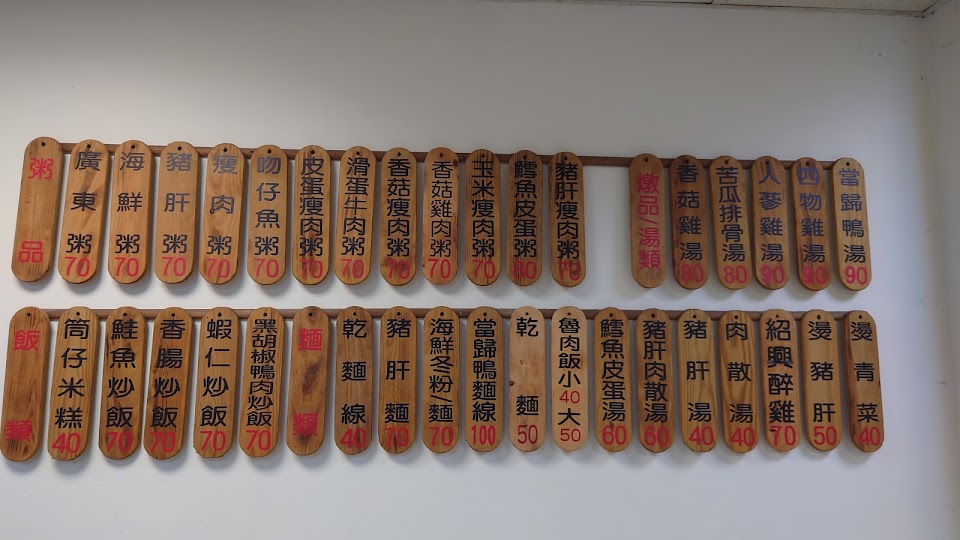 粥品
廣東粥70
海鮮粥70
豬肝粥70
瘦肉粥70
吻仔魚粥70
皮蛋瘦肉粥70
滑蛋牛肉粥70
香菇瘦肉粥70
香菇雞肉粥70
玉米瘦肉粥70
鱈魚皮蛋粥80
豬肝瘦肉粥70
燉品湯類
香菇雞湯80
苦瓜排骨湯80
人蔘雞湯90
四物雞湯90
當歸鴨湯90
飯類
筒仔米糕40
鮭魚炒飯70
香腸炒飯70
蝦仁炒飯70
黑胡椒鴨肉炒飯70
麵類
乾麵線40
豬肝麵70
海鮮冬粉/麵70
當歸鴨麵線100
乾麵50
魯肉飯小40大50
鱈魚皮蛋湯60
豬肝肉散湯60
豬肝湯40
肉散湯40
紹興醉雞70
燙豬肝50
燙青菜40